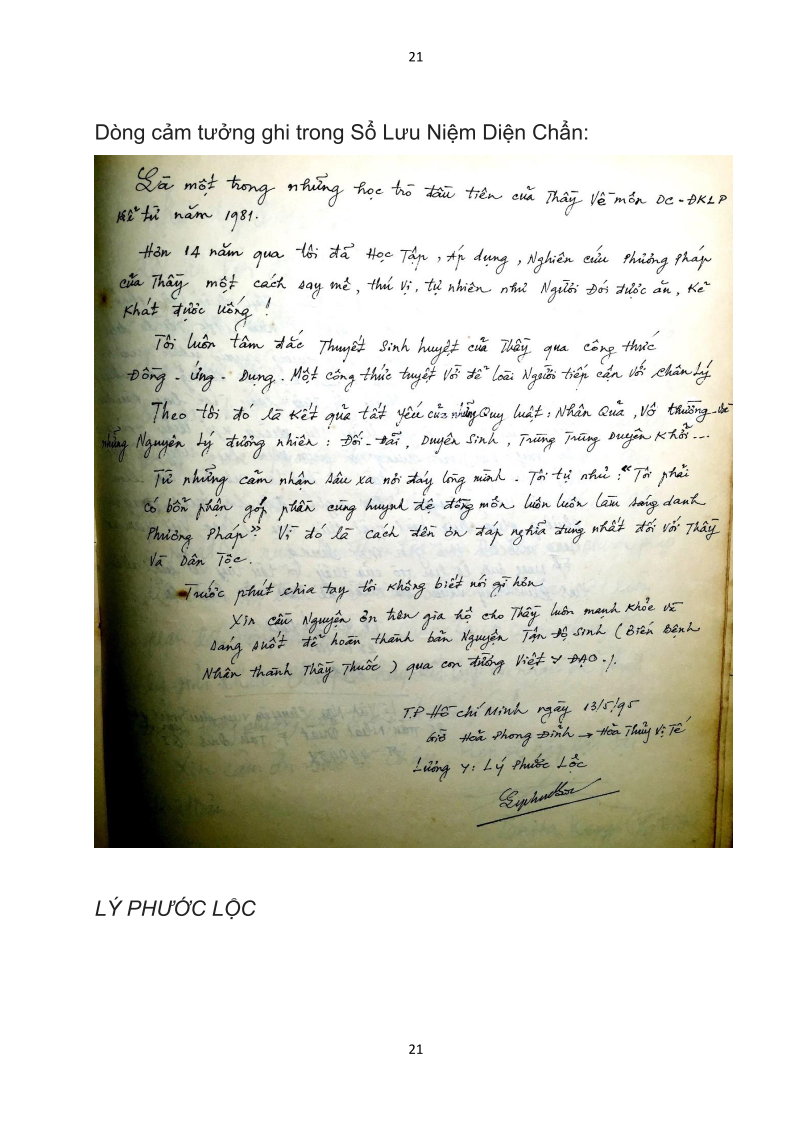 21
Dòng cảm tưởng ghi trong Sổ Lưu Niệm Diện Chẩn:
Là một trong những học trò đầu tiên của Thầy về môn DC - ĐKLP
kể từ năm 1981.
Hơn 14 năm qua tôi đã Học Tập, Áp dụng, Nghiên cứu Phương Pháp
của Thầy một cách say mê, thú vị, tự nhiên như Người Đói được ăn, Kẻ
Khát được Uống !
Tôi luôn tâm đắc Thuyết Sinh huyệt của Thầy qua công thức
Đồng - Ứng - Dụng. Một công thức tuyệt vời để loài Người tiếp cận với Chân Lý
Theo tôi đó là Kết quả tất yếu của những Quy luật : Nhân Quả, Vô thường - Về
những Nguyên Lý đương nhiên : Đối - Đãi, Duyên Sinh, Trùng Trùng Duyên Khởi ...
Từ những cảm nhận sâu xa nơi đáy lòng mình - Tôi tự nhủ : "Tôi phải
có bổn phận góp phần cùng huynh đệ đồng môn luôn luôn làm sáng danh
Phương Pháp" Vì đó là cách đền ơn đáp nghĩa đúng nhất đối với Thầy
Và Dân Tộc.
Trước phút chia tay tôi không biết nói gì hơn
Xin cầu Nguyện ơn trên gia hộ cho Thầy luôn mạnh khỏe và
sáng suốt để hoàn thành bản Nguyện Tận Độ Sinh ( Biến Bệnh
Nhân thành Thầy Thuốc ) qua con đường Việt Y ĐẠO ./.
T.P Hồ Chí Minh ngày 13/5/95
Giờ Hoả Phong Đỉnh → Hỏa Thủy Vị Tế
Lương Y : Lý Phước Lộc
LÝ PHƯỚC LỘC
21